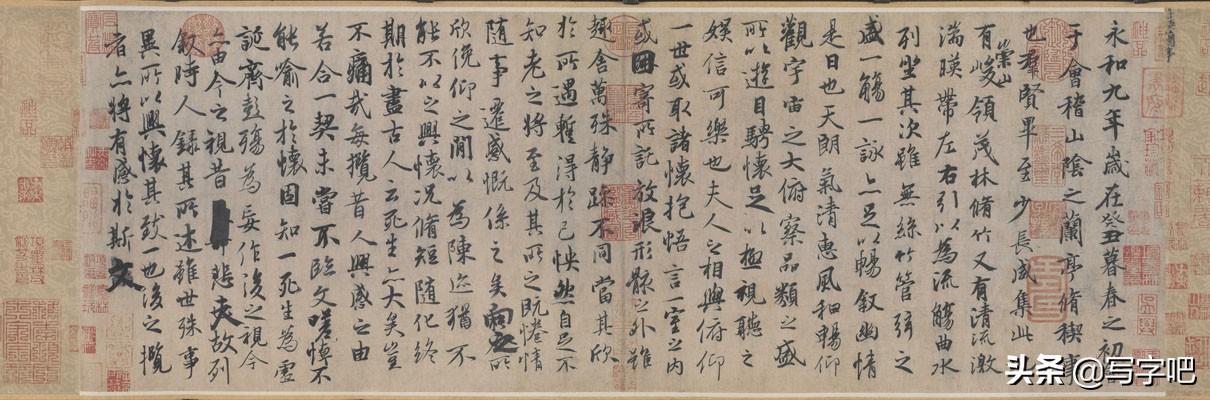 永和九年歲在癸丑暮春之初會
于會稽山陰之蘭亭脩稧事
也羣賢畢至少長咸集此地
有崇山峻領茂林脩竹又有清流激
湍暎帶左右引以為流觴曲水
列坐其次雖無絲竹管弦之
盛一觴一詠亦足以暢敘幽情
是日也天朗氣清惠風和暢仰
觀宇宙之大俯察品類之盛
所以遊目騁懷足以極視聽之
娛信可樂也夫人之相與俯仰
一世或取諸懷抱悟言一室之內
或因寄所託放浪形骸之外雖
趣舍萬殊靜躁不同當其欣
於所遇暫得於己怏然自足不
知老之將至及其所之既惓情
隨事遷感慨係之矣向之所
欣俛仰之閒以為陳迹猶不
能不以之興懷況脩短隨化終
期於盡古人云死生亦大矣豈
不痛哉每攬昔人興感之由
若合一契未嘗不臨文嗟悼不
能喻之於懷固知一死生為虛
誕齊彭殤為妄作後之視今
亦由今之視昔悲夫故列
敘時人錄其所述雖世殊事
異所以興懷其致一也後之攬
者亦將有感於斯文
头条@写字吧